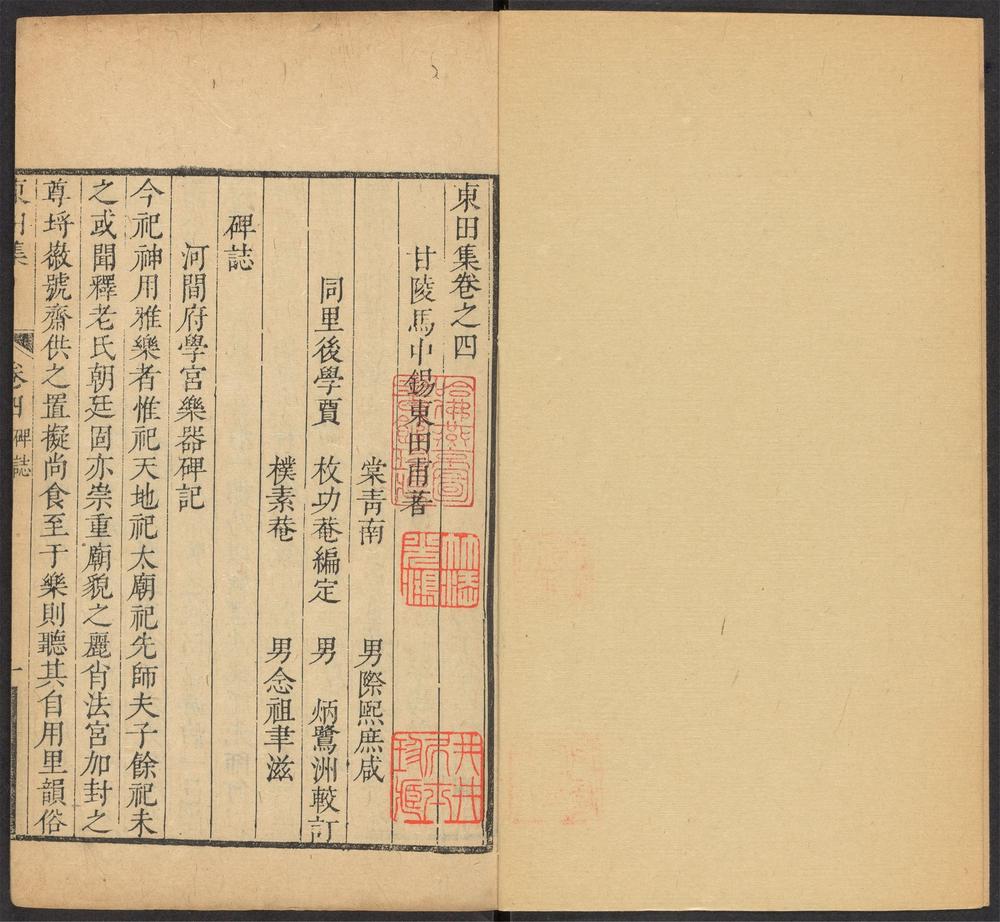 東田集卷之四
甘陵馬中錫東田甫著
棠青南　男際熙庶咸
同里後學賈　枚功菴編定　男　炳鷺洲較訂
樸素菴　男念祖聿滋
碑誌
河間府學宮樂器碑記
今祀神用雅樂者惟祀天地祀太廟祀先師夫子餘祀未
之或聞釋老氏朝廷固亦崇重廟貌之麗肖法宮加封之
尊埒徽號齋供之置擬尚食至于樂則聽其自用里韻俗
東田集　卷四　碑誌　一